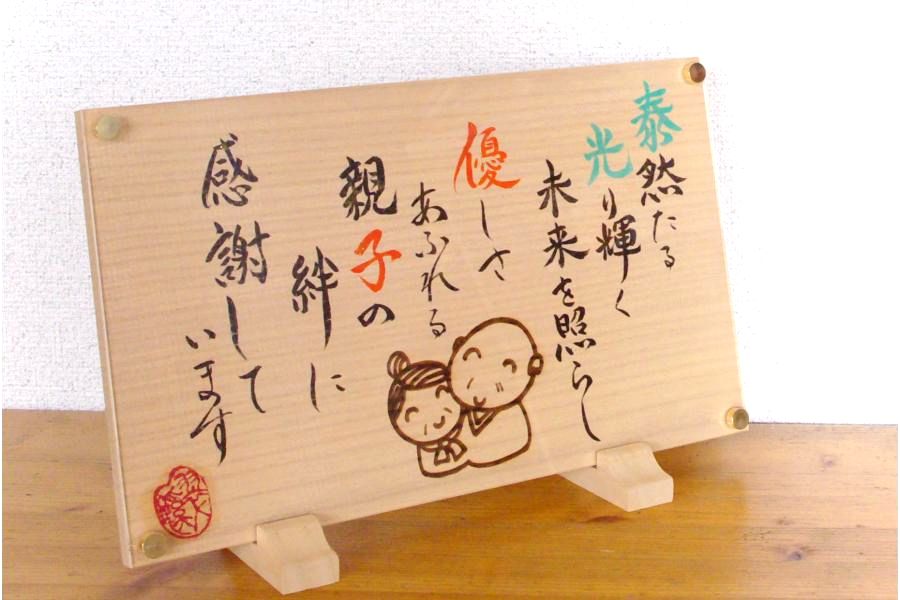 泰然たる
光り輝く
未来を照らし
優しさ
あふれる
親子の
絆に
感謝して
います